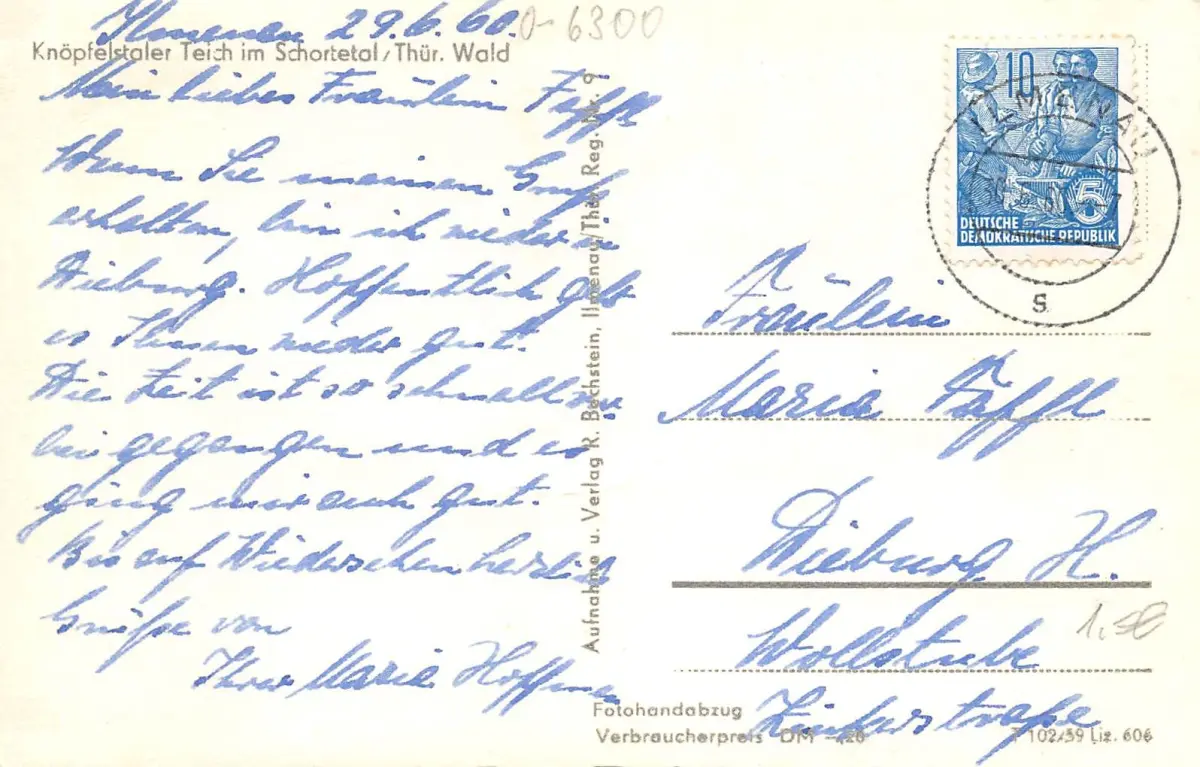 Ilmenau 29.6.60.
0-6300
Knöpfelstaler Teich im Schortetal/Thür. Wald
Mein liebes Fräulein
Wenn Sie meinen Gruß
erhalten, bin ich wieder in
Dieburg. Hoffentlich geht
es Ihnen wieder gut.
Die Zeit ist so schnell
hin gegangen und es
ging mir auch gut.
Bis auf Wiedersehen herzlich
Grüße von
Ihrer Maria
Aufnahme u. Verlag R. Bechstein, Ilmenau/Thür. Reg. Nr. 9
10
DEUTSCHE
DEMOKRATISCHE REPUBLIK
5
ILMENAU
S
Fräulein
Maria
Dieburg H.
Wollstube
1,50
Fotohandabzug
Verbraucherpreis DM -,26
T 102/59 Liz. 606